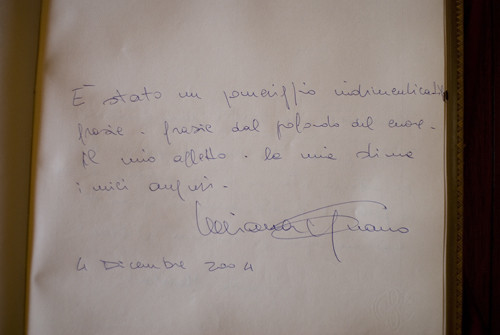 È stato un pomeriggio indimenticabile
grazie. grazie dal profondo del cuore.
Il mio affetto. la mia stima
i miei auguri.
4 Dicembre 2004